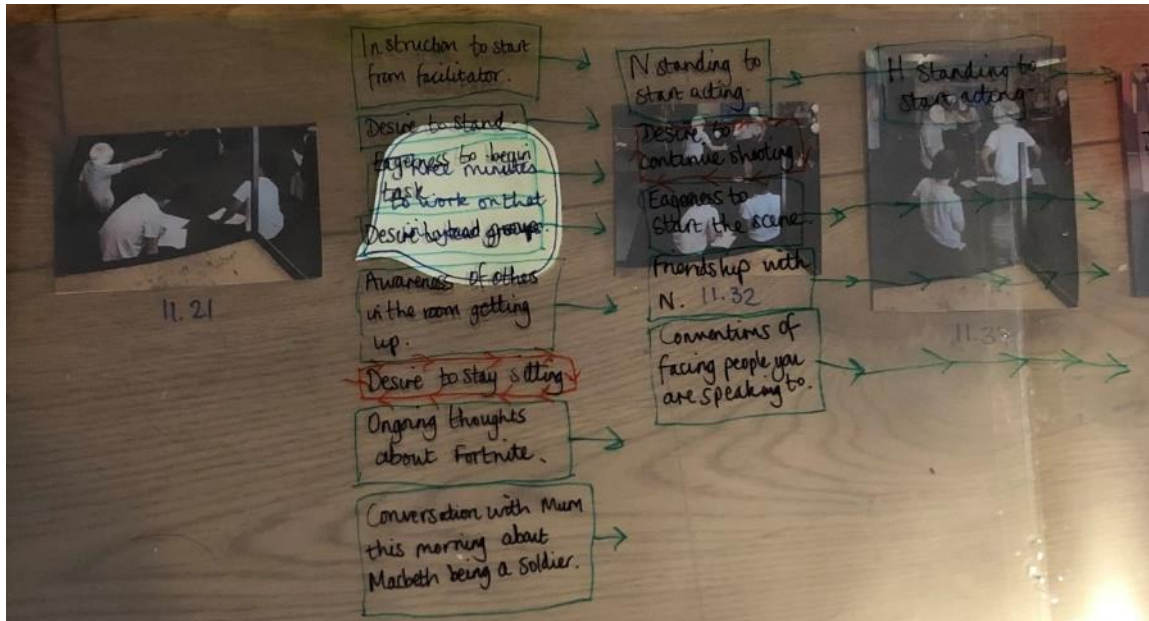 Instruction to start
from facilitator.
Desire to stand
Eagerness to begin
three minutes
task
to work on that
Desire to lead group.
in your groups.
Awareness of others
in the room getting
up.
Desire to stay sitting
Ongoing thoughts
about Fortnite.
Conversation with Mum
this morning about
Macbeth being a soldier.
11.21
N standing to
start acting.
Desire to
continue shooting
Eagerness to
start the scene
Friendship with
N. 11.32
Conventions of
facing people you
are speaking to.
H standing to
start acting